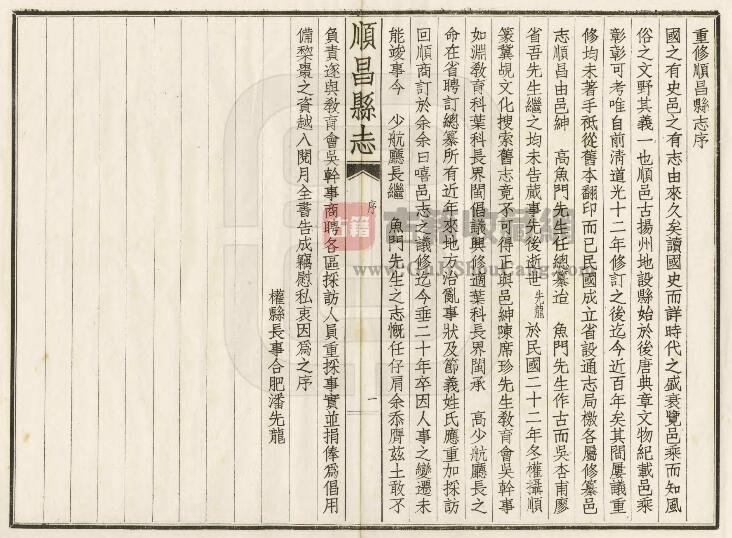 重修順昌縣志序
國之有史邑之有志由來久矣讀國史而詳時代之盛衰覽邑乘而知風
俗之文野其義一也順邑古揚州地設縣始於後唐典章文物紀載邑乘
彰彰可考唯自前淸道光十二年修訂之後迄今近百年矣其間屢議重
修均未著手祇從舊本翻印而已民國成立省設通志局檄各屬修纂邑
志順昌由邑紳 高魚門先生任總纂迨 魚門先生作古而吳杏甫廖
省吾先生繼之均未告蕆事先後逝世先龍於民國二十二年冬權攝順
篆冀覘文化搜索舊志竟不可得正與邑紳陳席珍先生敎育會吳幹事
如淵敎育科葉科長界閩倡議興修適葉科長界閩承 高少航廳長之
命在省聘訂總纂所有近年來地方治亂事狀及節義姓氏應重加採訪
回順商訂於余余曰嘻邑志之議修迄今垂二十年卒因人事之變遷未
能竣事今 少航廳長繼 魚門先生之志慨任仔肩余忝膺茲土敢不
順昌縣志
序
一
負責遂與敎育會吳幹事商聘各區採訪人員重採事實並捐俸爲倡用
備棃棗之資越入閱月全書告成竊慰私衷因爲之序
權縣長事合肥潘先龍
古籍
www.GuJiShouCang.com